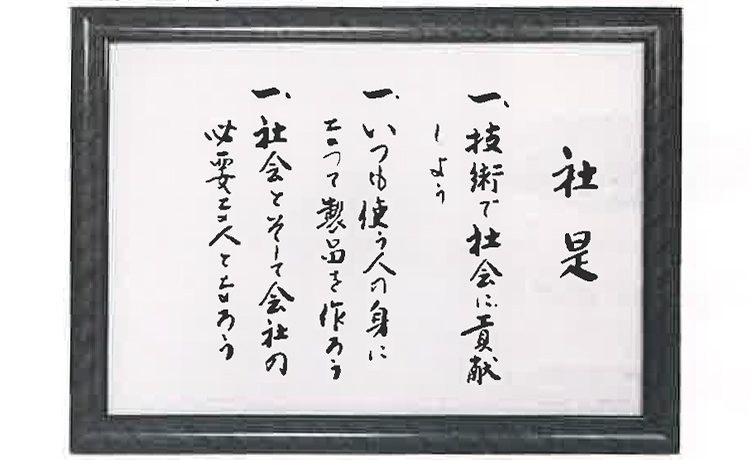 社是
一、技術で社会に貢献
しよう
一、いつも使う人の身に
なって製品を作ろう
一、社会とそして会社の
必要な人となろう